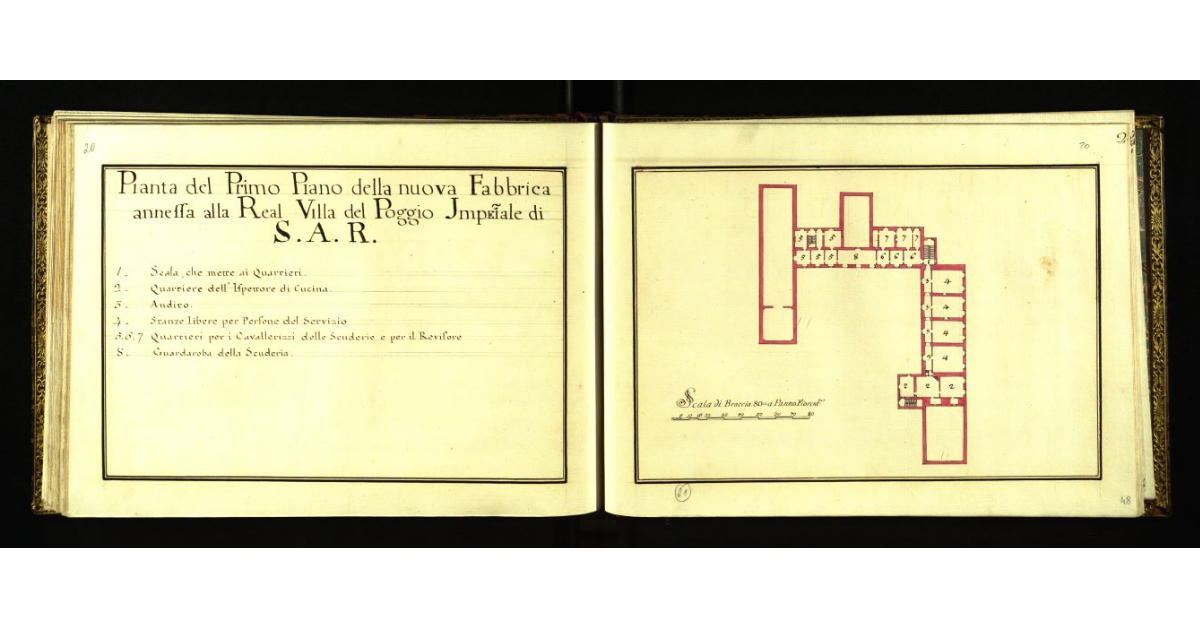 20
Pianta del Primo Piano della nuova Fabbrica
annessa alla Real Villa del Poggio Imp.le di
S. A. R.
1. Scala, che mette ai Quartieri.
2. Quartiere dell' Ispettore di Cucina.
3. Andito.
4. Stanze libere per Persone del Servizio
5.6.7 Quartieri per i Cavallerizzi delle Scuderie e per il Revisore
8. Guardaroba della Scuderia.
70
5 5 7 7 7
5 5 5 8 6 6 6
3 4
3 4
3 4
3 4
2 2 2
Scala di Braccia 80 a Panno Fiorent.
80
21
48